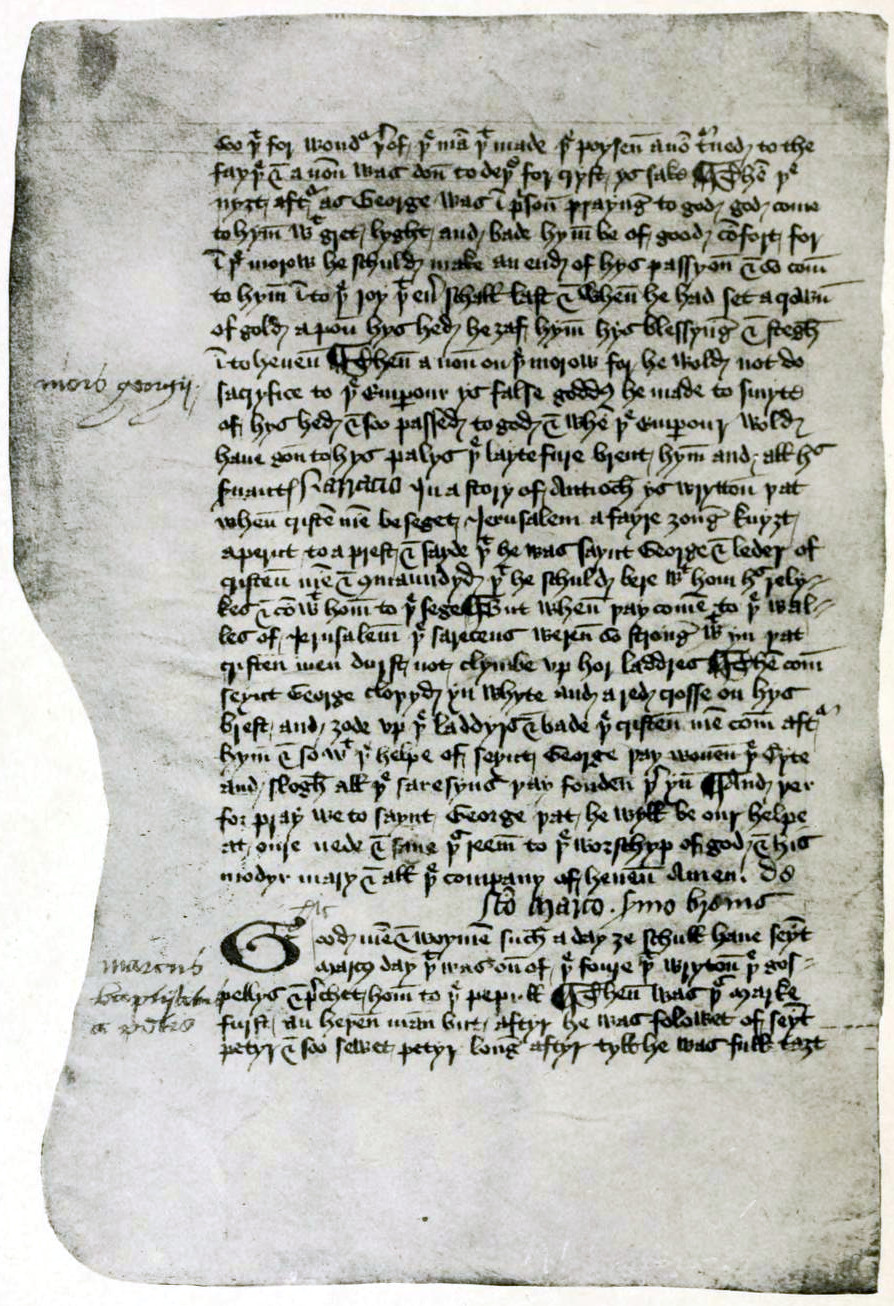 Soo þt for wondᵃ þʳof þe mā þt made þe poysen anō t'ned to the
fayþ & anoñ was doñ to deþe for cryst ys sake ¶ Thē þe
nyȝt aftʳ as George was ī p'soñ prayng to god god come
to hym wt gret lyght and bade hym be of good cōfort for
ī þe morow he schuld make an end of hys passyoñ & so com
to hym īto þe joy þt eu' schall last & when he had set a crown
of gold apon hys hed he ȝaf hym hys blessyng & stegh
īto heuen ¶ Then anon on þe morow for he wold not do
mors georgij
sacryfice to þe Emperour ys false goddes he made to smyte
of hys hed & soo passed to god & whē þe Emperour wold
haue gon to hys palys þe layte fure brent hym and all hs
s'uantes Narracio In a story of Antioch ys wryton þat
when cristē mē beseget Jerusalem a fayre ȝong knyȝt
aperut to a prest & sayde þt he was saynt George & leder of
cristen mē & cōmaundyd þt he schuld bere wt hom hs rely=
kes & cō wt hom to þe sege ¶ But when þay come to þe wal=
les of Jerusalem þe sarecens weren so strong wt yn þat
cristen men durst not clymbe vp hor laddres ¶ Thē com
seynt George cloþyd yn whyte and a red crosse on hys
brest and ȝode vp þe laddyrs & bade þe cristen mē com aftʳ
hym & so wt þe helpe of seynt George þay wonen þe cyte
and slogh all þe saresyns þay fonden þʳ yn ¶ And þer
for pray we to saynt George þat he wyll be our helpe
at oure nede & saue þs reem to þe worschyp of god & his
modyr mary & all þe company of heuen Amen. De
sco Marco. sermo breuis
Good mē & woymē such a day ȝe schull haue seyt
marcus
marcys day þt was on of þe foure þt wryton þe gos=
pellys & p'chet hom to þe pepull ¶ Then was þs marke
furst an heþen man but aftyr he was folowet of seyt
petyr & soo sewet petyr long aftyr tyll he was full taȝt